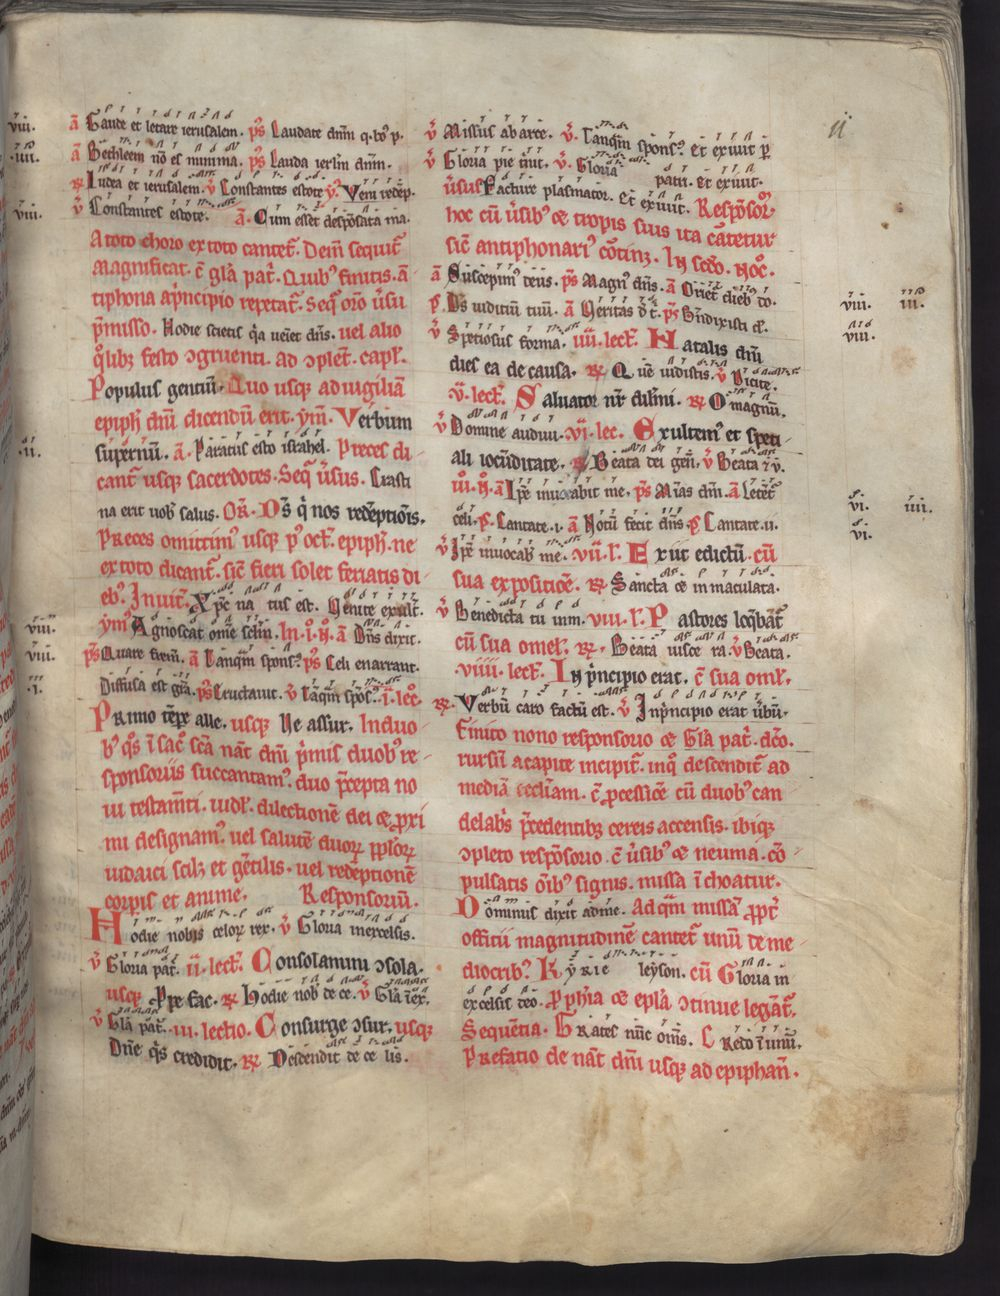 ii
viii. a Gaude et letare ierusalem. ps Laudate dnm q. bo p.
iiii. a Bethleem no es minima. ps Lauda ierlm dnm.
R Iudea et ierusalem. v Constantes estote v Veni redep.
viii. v Constantes estote. a. Cum esset desponsata ma.
A toto choro ex toto cantet. Dem sequit
magnificat. c gla pat. Quibꝰ finitis. a
tiphona aprincipio repetat. Seq oro usu
pmisso. Hodie scietis qa ueiet dns. uel alio
qlibz festo ↄgruenti. ad ↄplet. capl.
Populus gentiu. Quo usqz ad uigilia
epiph dni dicendu erit. ym. Verbum
ii. supernu. a. Paratus esto israhel. Preces di
cant usqz sacerdotes. Seq usus. Crasti
na erit uob salus. Or. Ds q nos redeptiois.
Preces omittimꝰ usqz p oct. epiph. ne
ex toto dicant. sic fieri solet feriatis di
ebꝰ. Inuit. Xpc na tus est. Venite exult.
viii. ymꝰ Agnoscat ome sclm. In. i. n. a Dns dixit.
viii. ps Quare frem. a Tanqm sponsꝰ ps Celi enarrant.
i. Diffusa est gra. ps Eructauit. v Taqm spos. i. lec.
Primo tepe alle. usqz Ne assur. In duo
bꝰ qs i sac sca nat dni pmis duobꝰ re
sponsoriis succantamꝰ. duo pcepta no
ui testamti. uidl. dilectione dei et pxi
mi designamꝰ. uel salute duoꝝ pploꝝ
iudaici scilz et getilis. uel redeptione
corpis et anime. Responsoriu.
Hodie nobis celoꝝ rex. v Gloria inexcelsis.
v Gloria pat. ii. lect. Consolamini ↄsola.
usqz Ppe fac. R Hodie nob de ce. v Gla iex.
v Gla pat. iii. lectio. Consurge ↄsur. usqz
Dne qs credidit. R Descendit de ce lis.
v Missus ab arce. v. Tanqm sponsꝰ. Et exiuit p
v Gloria pie tnit. v. Gloria patri. Et exiuit.
usus Facture plasmator. Et exiuit. Responsor
hoc cu usibꝰ et tropis suis ita catetur
sic antiphonariꝰ cotinz. In secdo. noc.
a Suscepimꝰ deus. ps Magnꝰ dns. a Oriet dieb do. viii. iii.
p. Ds iudiciu tuu. a Veritas d t. ps Bndixisti d. viii.
v Speciosus forma. iiii. lect. Natalis dni
dies ea de causa. R Que uidistis. v Dicite.
v. lect. Saluator nr dilmi. R O magnu.
v Domine audiui. vi. lec. Exultemꝰ et speti
ali iocuditate. R Beata dei gen. v Beata
iii. n. a Ipe inuocabit me. ps Mias dni. a Letet vi. iiii.
celi. p. Cantate. i. a Notu fecit dns p Cantate. ii. vi.
v Ipe inuocab me. vii. l. Exiit edictu. cu
sua expositioe. R Sancta et inmaculata.
v Benedicta tu im. viii. l. Pastores loqbat
cu sua omel. R. Beata uisce ra. v Beata.
viiii. lect. In pncipio erat. c sua oml.
R. Verbu caro factu est. v Inpncipio erat ubu.
Finito nono responsorio et Gla pat. dco.
rursu a capite incipit. inq descendit ad
media eccliam. c pcessioe cu duobꝰ can
delabs pcedentibz cereis accensis. ibiqz
ↄpleto resposorio. c usibꝰ et neuma. co
pulsatis oibꝰ signis. missa ichoatur.
Dominus dixit adme. Ad qm missa ppt
officii magnitudine cantet unu de me
diocribꝰ. Kyrie leyson. cu Gloria in
excelsis deo. Pphia et epla ↄtinue legat.
Sequetia. Grates nuc oms. Credo i unu.
Prefatio de nat dni usqz ad epiphan.